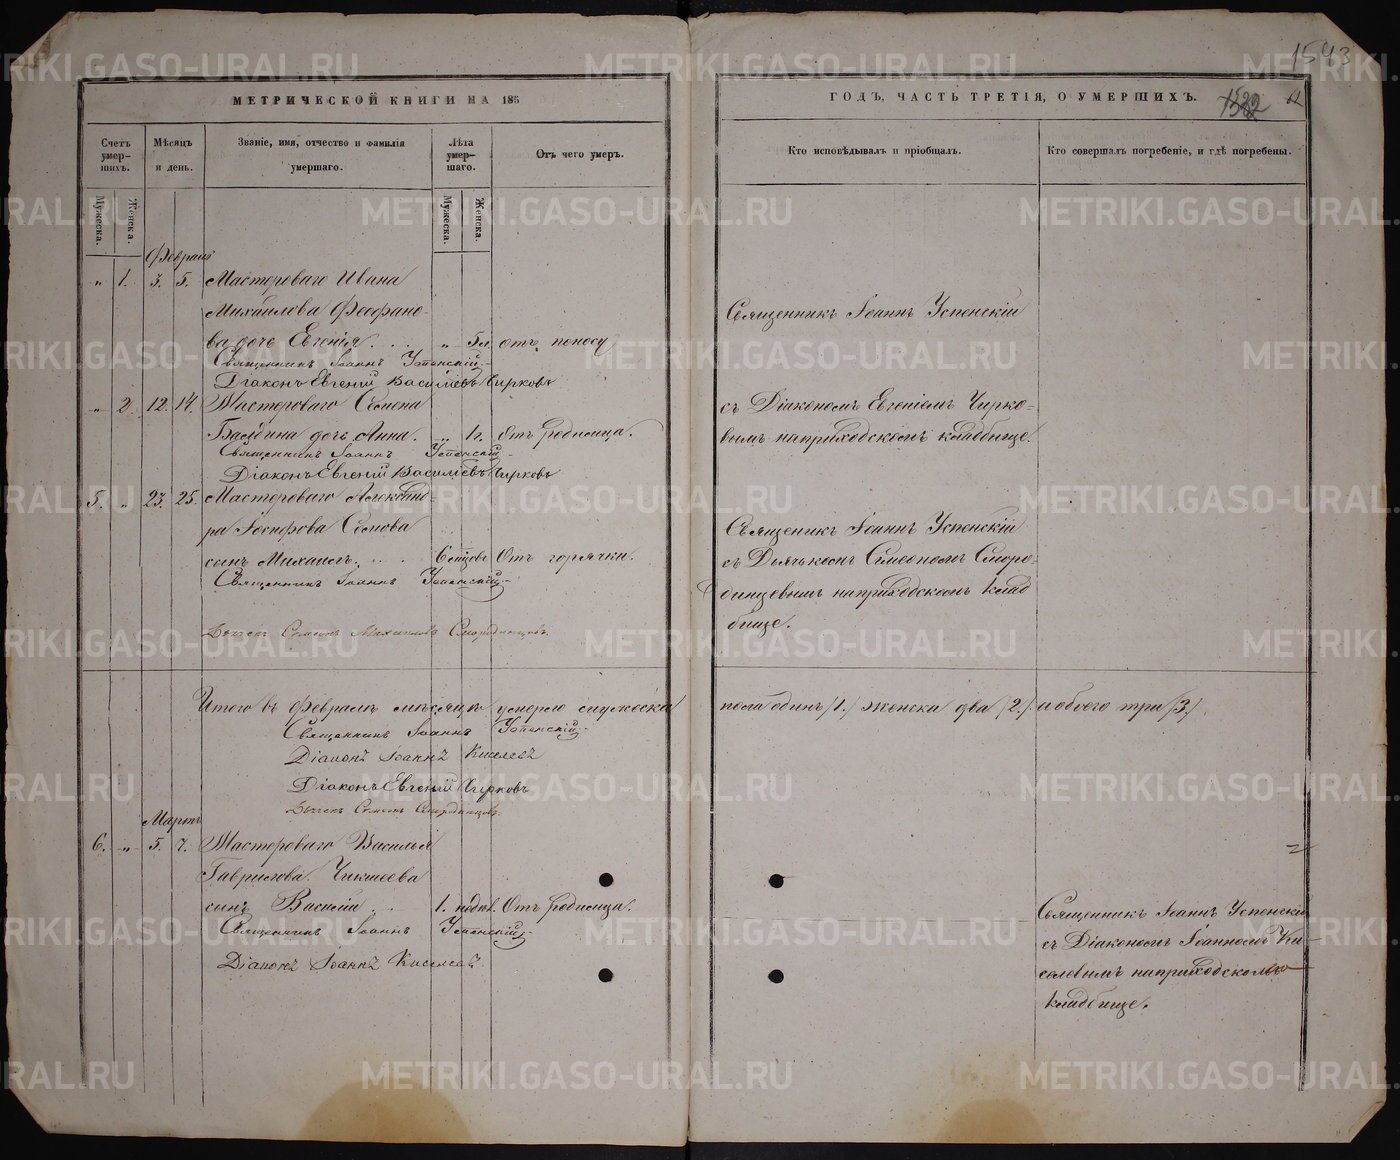 1543
МЕТРИЧЕСКОЙ КНИГИ НА 185
ГОДЪ, ЧАСТЬ ТРЕТІЯ, О УМЕРШИХЪ.
1522
Счетъ умер-шихъ.
Мужеска.
Женска.
Мѣсяцъ и день.
Званіе, имя, отчество и фамилія умершаго.
Лѣта умер-шаго.
Мужеска.
Женска.
Отъ чего умеръ.
Кто исповѣдывалъ и пріобщалъ.
Кто совершалъ погребеніе, и гдѣ погребены.
Февраля
" 1. 3. 5. Мастероваго Ивана
Михайлова Феофано-
ва дочь Евгенія " 5 отъ поносу
Священникъ Іоаннъ Успенскій
Діаконъ Евгеній Васильевъ Чирковъ
Священникъ Іоаннъ Успенскій
съ Діакономъ Евгеніемъ Чирко-
вымъ наприходскомъ кладбище.
" 2. 12. 14. Мастероваго Семена
дочь Анна. " 1г. Отъ родимца.
Священникъ Іоаннъ Успенскій
Діаконъ Евгеній Васильевъ Чирковъ
5. " 23. 25. Мастероваго Александ-
ра Іосифова
сынъ Михаилъ. 6 Отъ горячки.
Священникъ Іоаннъ Успенскій
Дьячекъ Симеонъ Михайловъ Смородинцовъ.
Священникъ Іоаннъ Успенскій
съ Дьячькомъ Симеономъ Сморо-
динцевымъ наприходскомъ клад
бище.
Итого въ февралѣ мѣсяцѣ умерло мужеска
пола одинъ /1./ женска два /2./ и обоего три /3./
Священникъ Іоаннъ Успенскій
Діаконъ Іоаннъ Киселевъ
Діаконъ Евгеній Чирковъ
Дьячекъ Симеонъ Смородинцовъ.
Мартъ
6. " 5. 7. Мастероваго Василья
Гаврилова
сынъ Василій 1. Отъ родимца.
Священникъ Іоаннъ Успенскій
Діаконъ Іоаннъ Киселевъ.
Священникъ Іоаннъ Успенскій
съ Діакономъ Іоанномъ Ки-
селевымъ наприходскомъ
кладбище.
METRIKI.GASO-URAL.RU